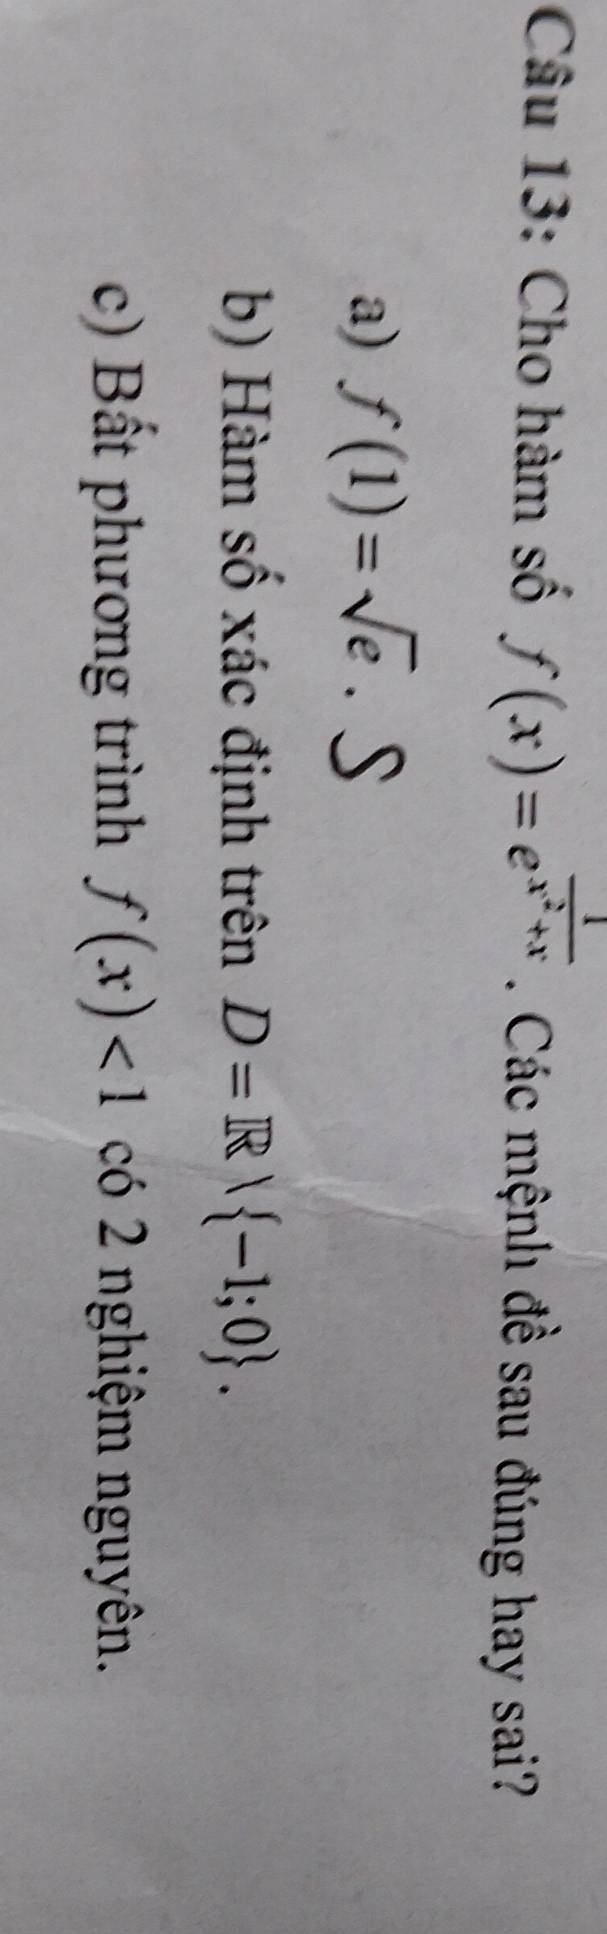 Câu 13: Cho hàm số $f(x)=e^{\frac{1}{x^2+x}}$. Các mệnh đề sau đúng hay sai?
a) $f(1)=\sqrt{e}$. S
b) Hàm số xác định trên $D=\mathbb{R}\setminus\{-1;0\}$.
c) Bất phương trình $f(x)<1$ có 2 nghiệm nguyên.